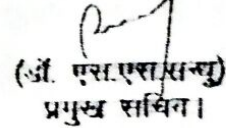 (डॉ. एस.एस.सन्धु)
प्रमुख सचिव।